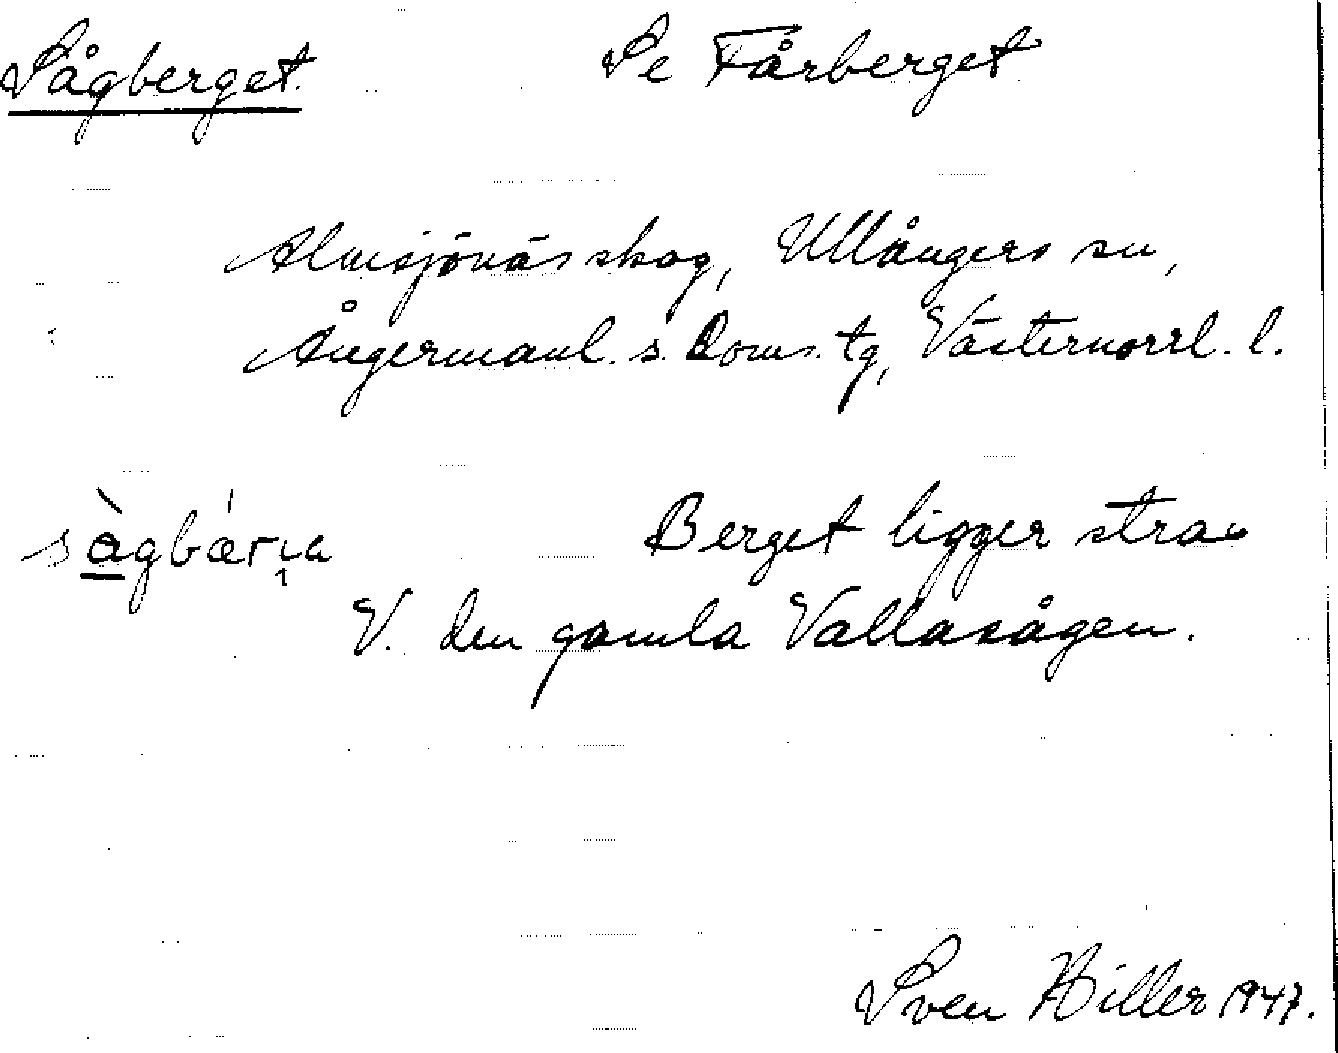 Sågberget. Se Fårberget
Almsjönäs skog, Ullångers sn,
Ångermanl. s. Doms. tg, Västernorrl. l.
Berget ligger strax
V. den gamla Vallasågen.
Sven Hiller 1947.